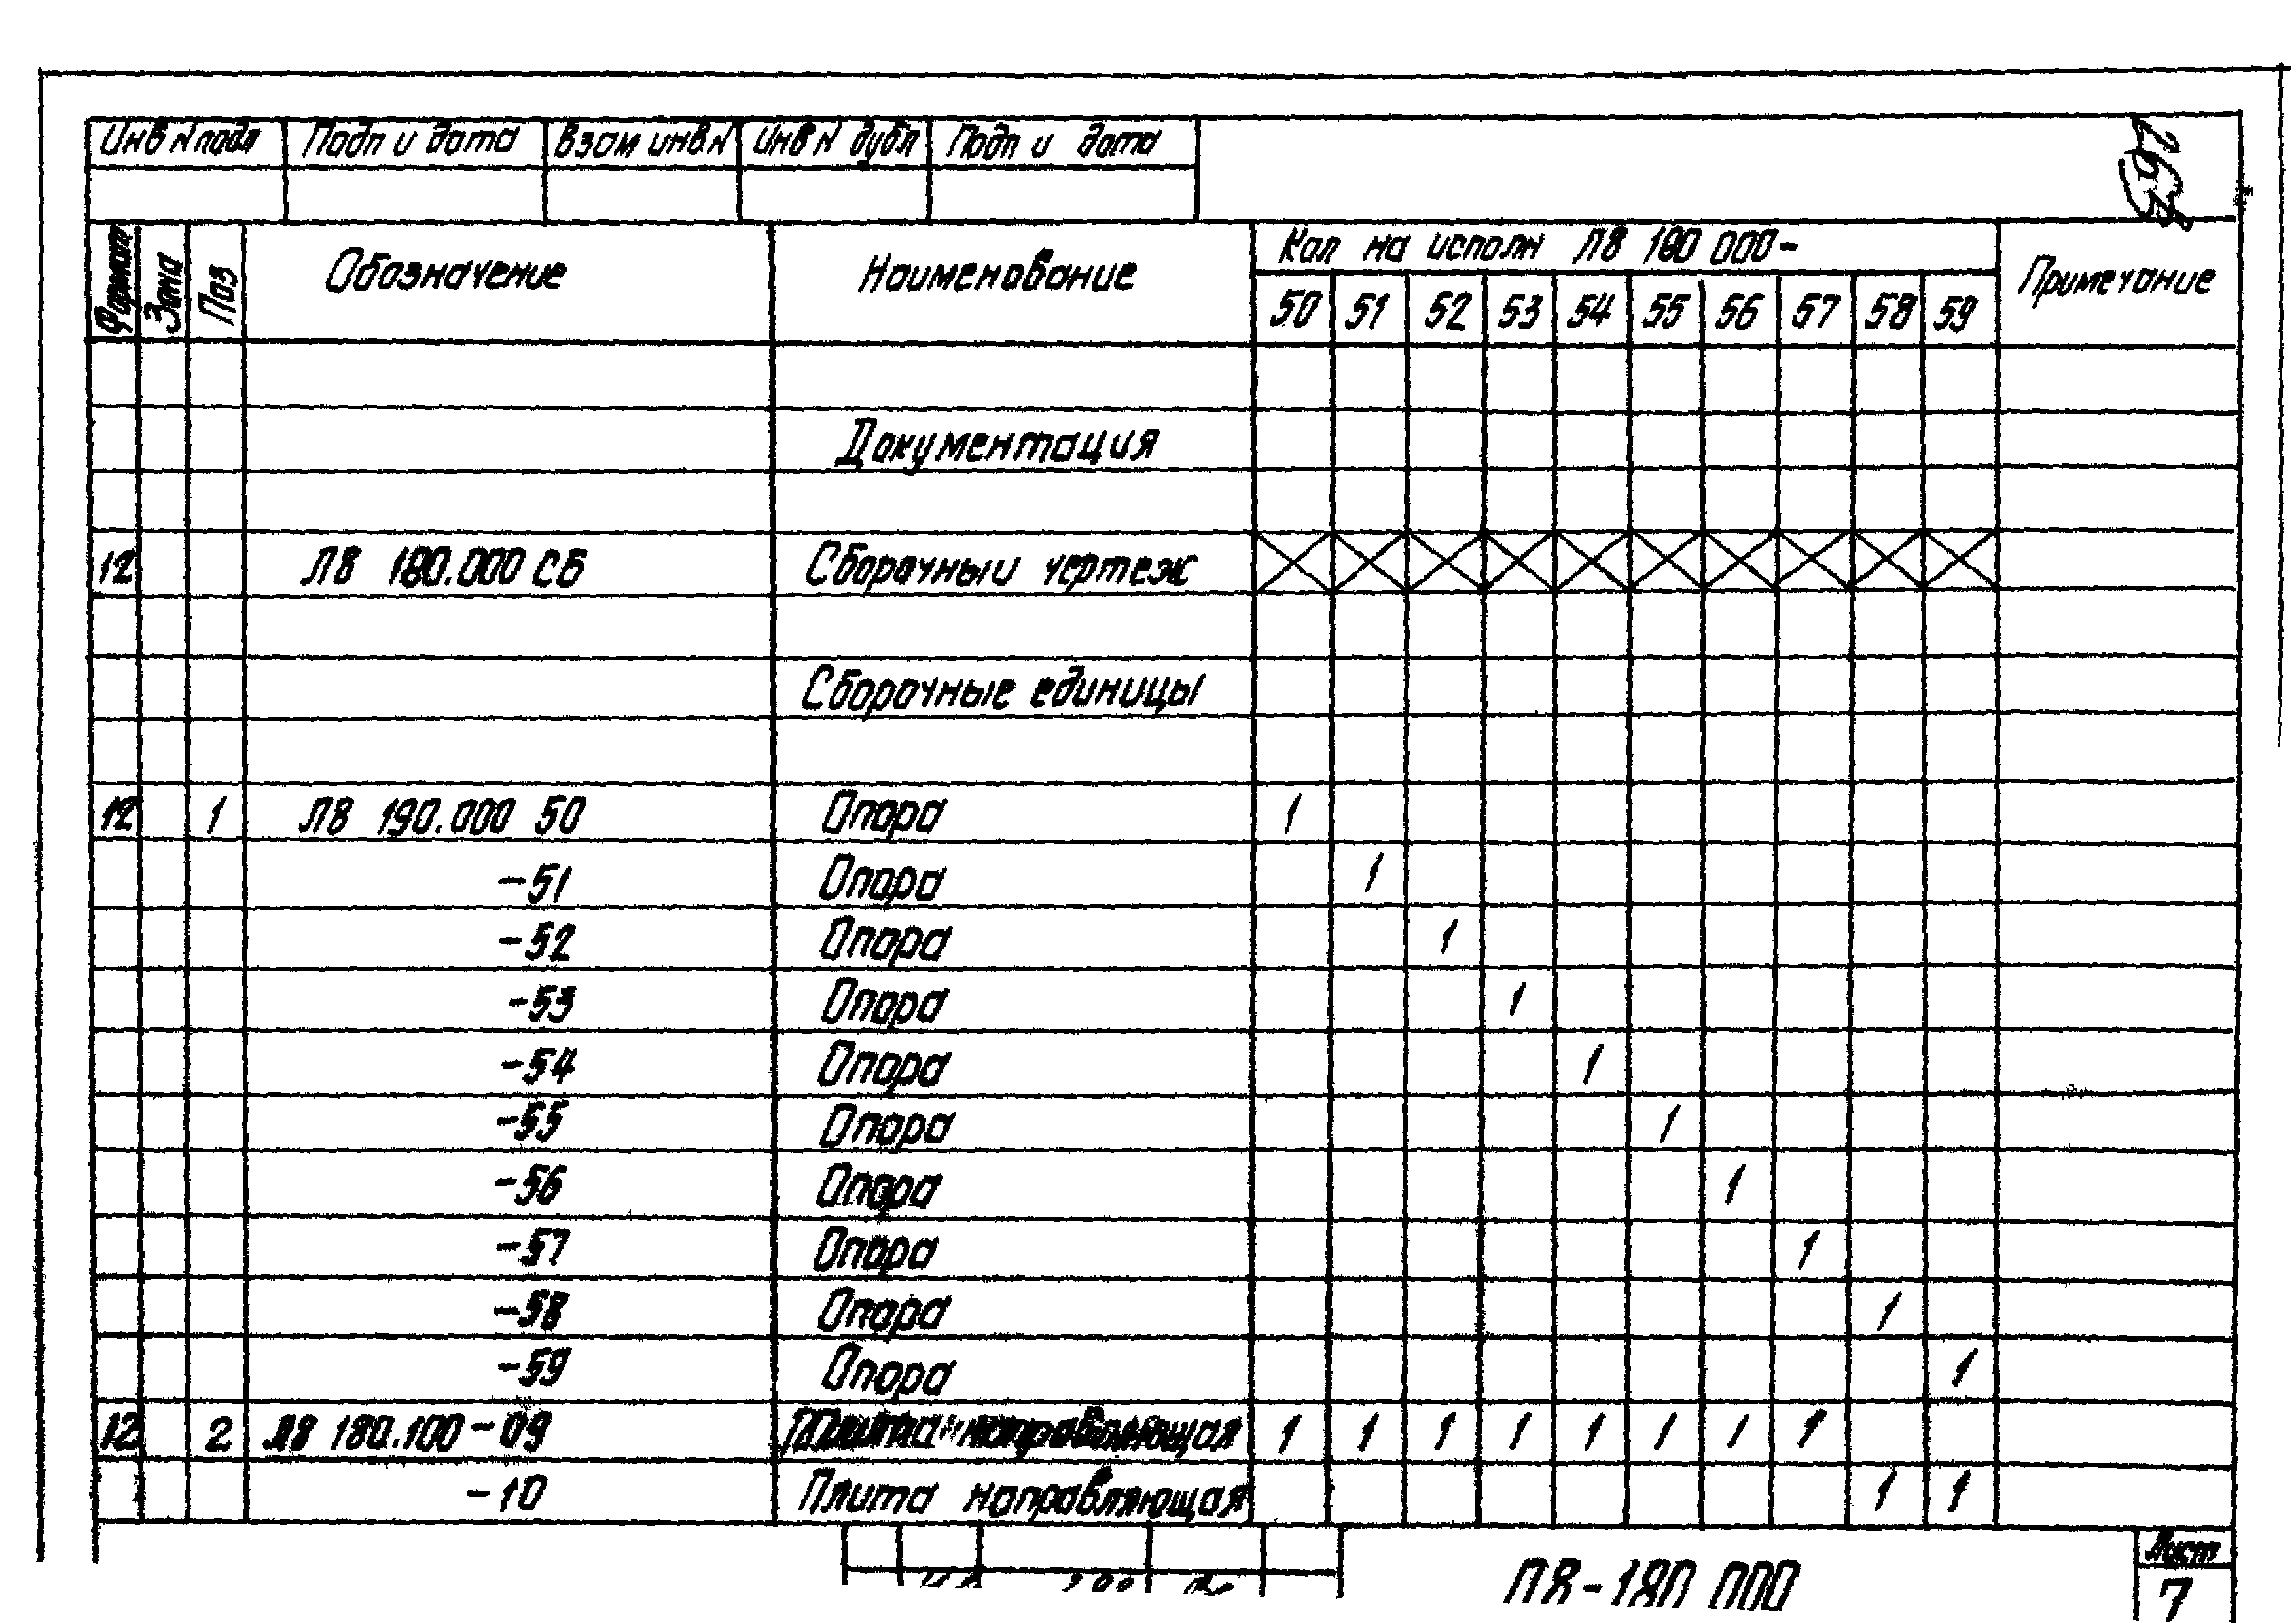 Инв N подл Подп и дата Взам инв N Инв N дубл Подп и дата
Формат Зона Поз Обозначение Наименование Кол на исполн Л8 180 000- Примечание
50 51 52 53 54 55 56 57 58 59
Документация
12 Л8 180.000 СБ Сборочный чертеж
Сборочные единицы
12 1 Л8 190.000 50 Опора 1
-51 Опора 1
-52 Опора 1
-53 Опора 1
-54 Опора 1
-55 Опора 1
-56 Опора 1
-57 Опора 1
-58 Опора 1
-59 Опора 1
12 2 Л8 180.100-09 Плита направляющая 1 1 1 1 1 1 1 1
-10 Плита направляющая 1 1
Л8-180 000
Лист
7